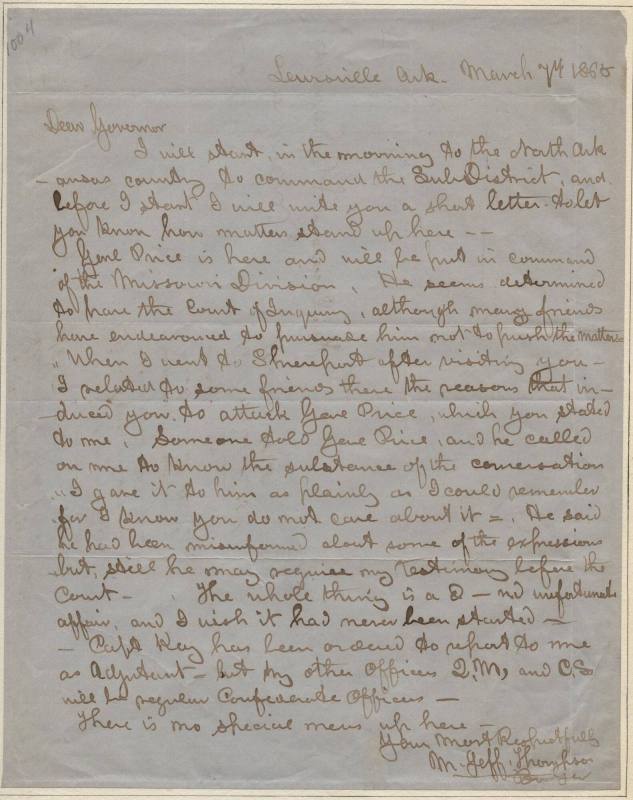 1004
Lewisville Ark. March 7th 1865
Dear Governor
I will start, in the morning to the North Ark
-ansas country to command the Sub District, and
before I start I will write you a short letter to let
you know how matters stand up here --
Genl Price is here and will be put in command
of the Missouri Division. He seems determined
to have the Court of Inquiry, although many friends
have endeavored to pursuade him not to push the matter
When I went to Shreveport after visiting you -
I related to some friends there the reasons that in-
duced you to attack Genl Price, which you stated
to me. Someone told Genl Price, and he called
on me to know the substance of the conversation
I gave it to him as plainly as I could remember
for I know you do not care about it =. He said
he had been misinformed about some of the expressions
but, still he may require my testimony before the
Court - The whole thing is a d - nd unfortunate
affair, and I wish it had never been started -
- Capt Kay has been ordered to report to me
as Adjutant - but my other officers Q.M, and C.S.
will be regular Confederate Officers -
There is no special news up here -
Your Most Respectfully
M. Jeff. Thompson